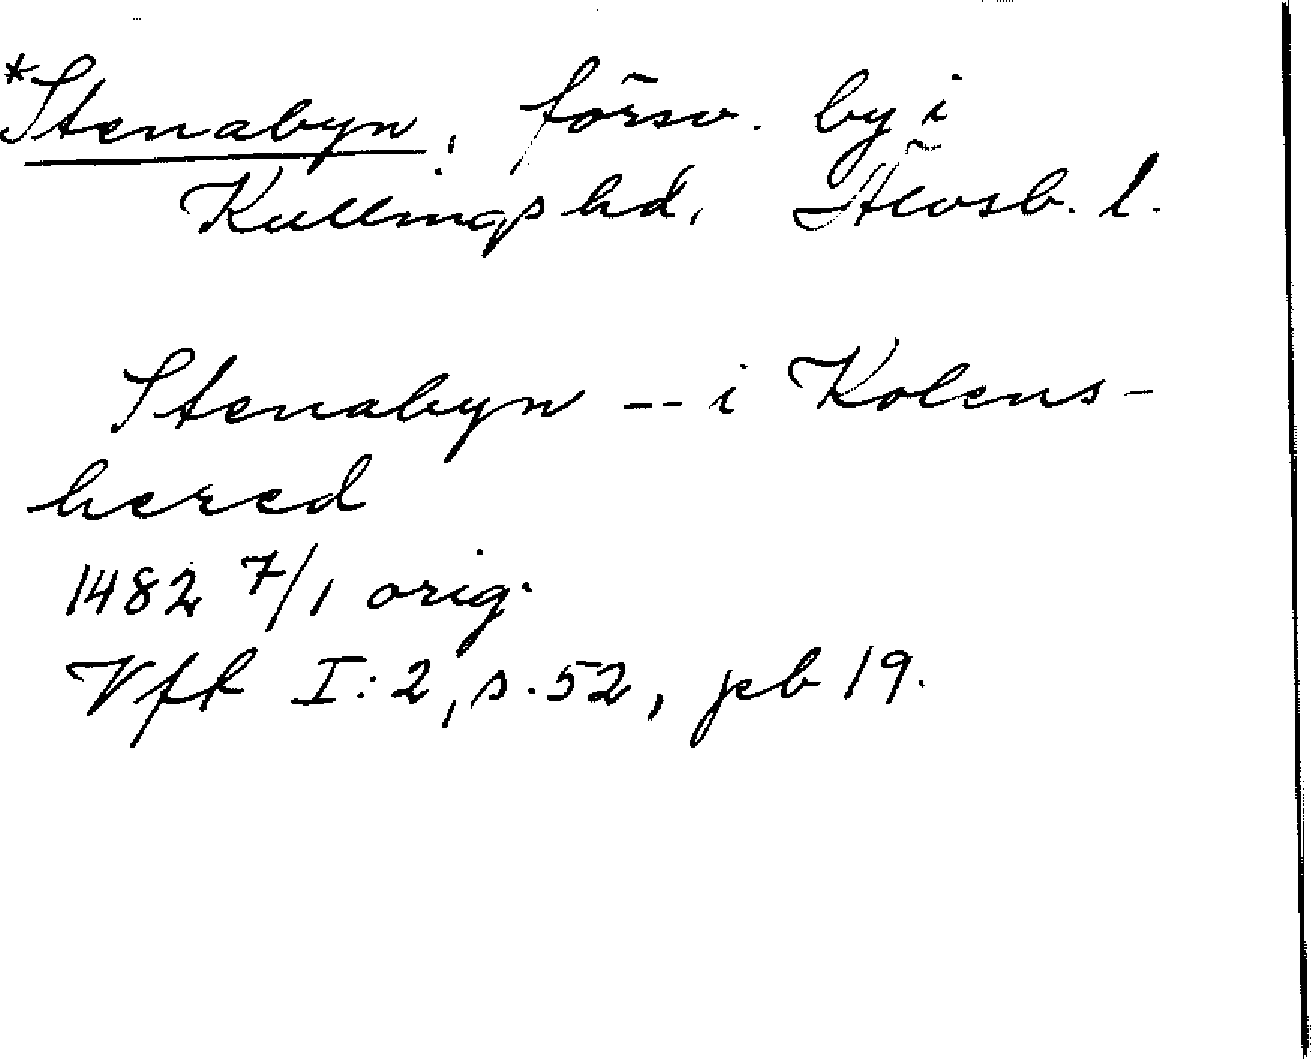 *Stenabyn, försv. by i
Kullings hd, Älvsb. l.
Stenabyn -- i Kolens-
hered
1482 7/1 orig.
Vfk I:2, s. 52, pb 19.